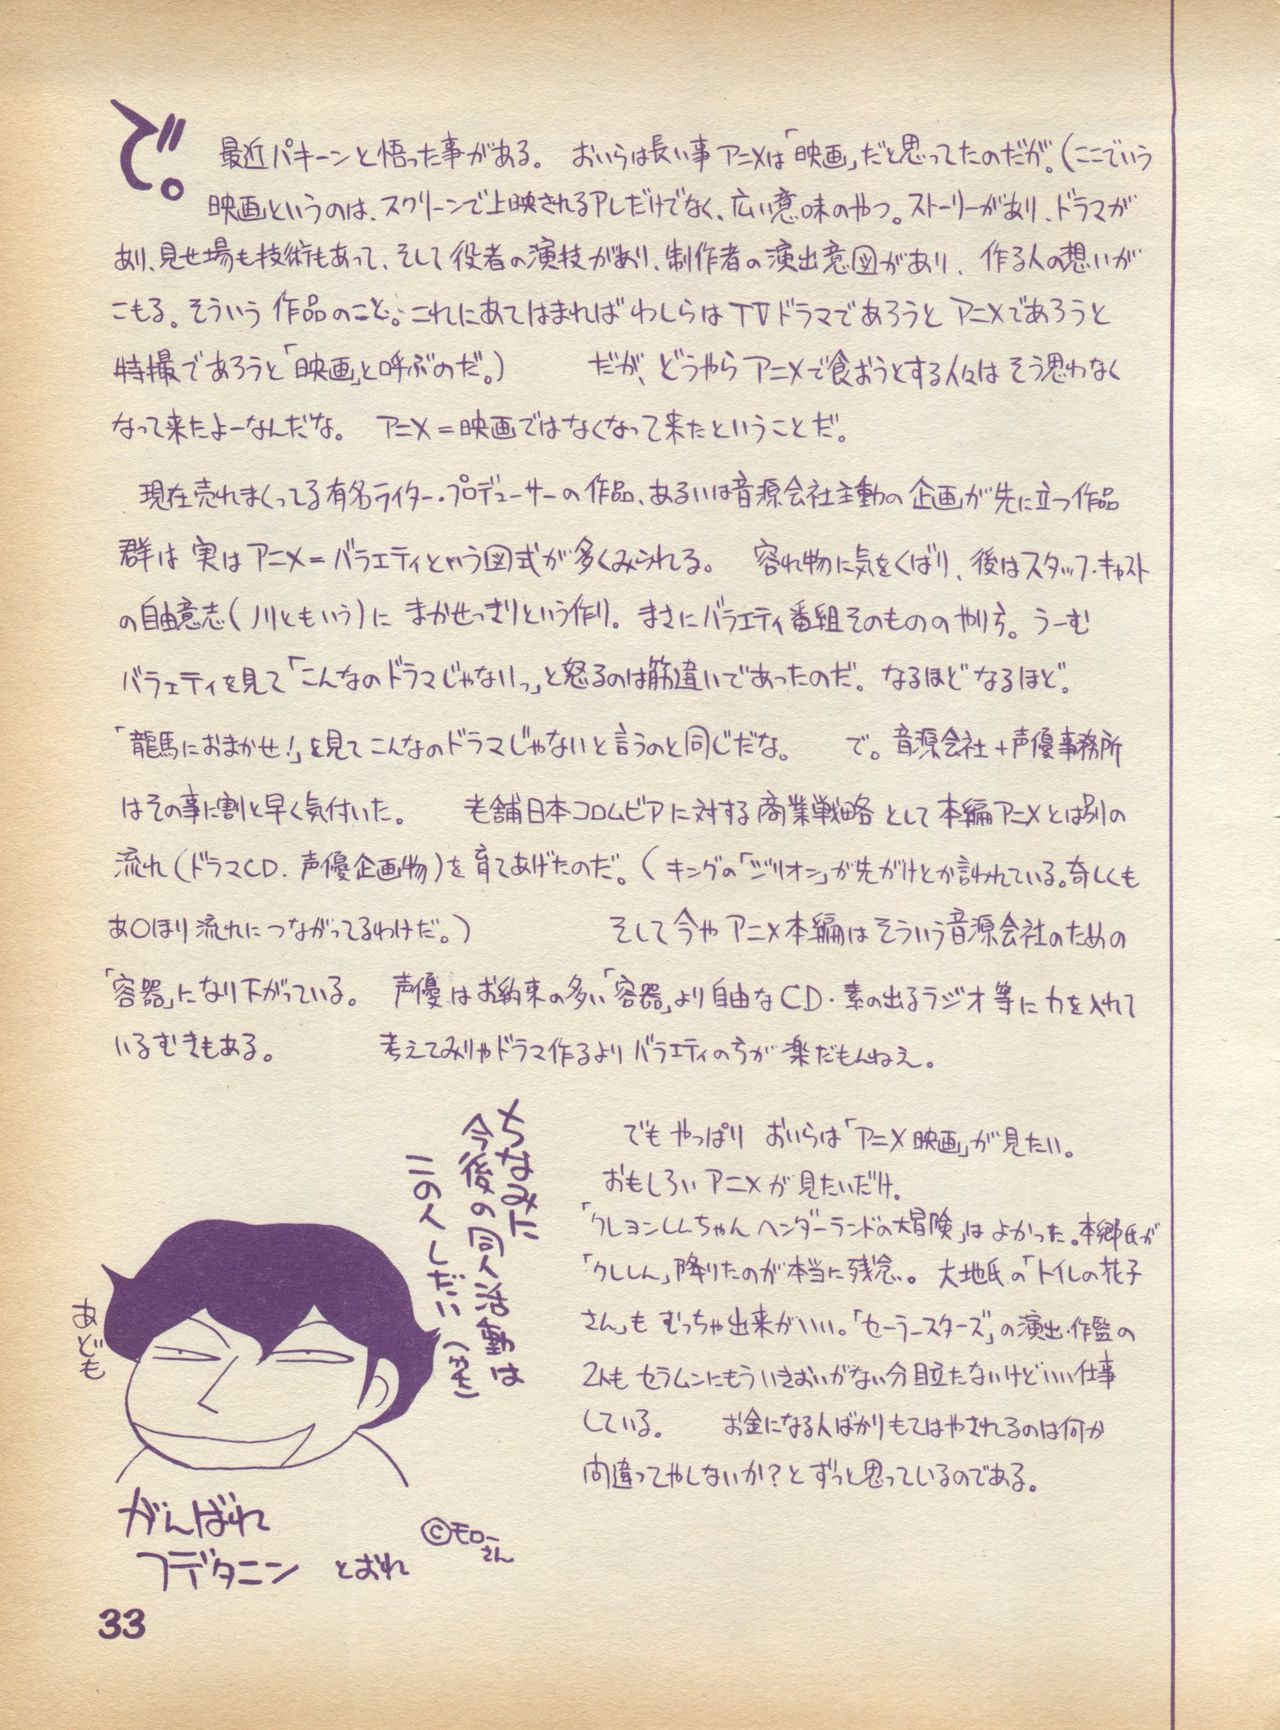 で。 最近パキーンと悟った事がある。 おいらは長い事アニメは「映画」だと思ってたのだが。(ここでいう
映画というのは、スクリーンで上映されるアレだけでなく、広い意味のやつ。ストーリーがあり、ドラマが
あり、見せ場も技術もあって、そして役者の演技があり、制作者の演出意図があり、作る人の想いが
こもる。そういう作品のこと。これにあてはまればわしらはTVドラマであろうとアニメであろうと
特撮であろうと「映画」と呼ぶのだ。) だが、どうやらアニメで食おうとする人々はそう思わなく
なって来たよーなんだな。 アニメ=映画ではなくなって来たということだ。
現在売れまくってる有名ライター・プロデューサーの作品、あるいは音源会社主動の企画が先に立つ作品
群は実はアニメ=バラエティという図式が多くみられる。 容れ物に気をくばり、後はスタッフ・キャスト
の自由意志(川ともいう)にまかせっきりという作り。まさにバラエティ番組そのもののやり方。うーむ
バラエティを見て「こんなのドラマじゃないっ」と怒るのは筋違いであったのだ。なるほどなるほど。
「龍馬におまかせ!」を見てこんなのドラマじゃないと言うのと同じだな。 で。音源会社+声優事務所
はその事に割と早く気付いた。 老舗日本コロムビアに対する商業戦略として本編アニメとは別の
流れ(ドラマCD.声優企画物)を育てあげたのだ。(キングの「ジリオン」が先がけとか言われている。奇しくも
あ○ほり流れにつながってるわけだ。) そして今やアニメ本編はそういう音源会社のための
「容器」になり下がっている。 声優はお約束の多い「容器」より自由なCD・素の出るラジオ等に力を入れて
いるむきもある。 考えてみりゃドラマ作るよりバラエティの方が楽だもんねえ。
でもやっぱりおいらは「アニメ映画」が見たい。
おもしろいアニメが見たいだけ。
「クレヨンしんちゃんヘンダーランドの大冒険」はよかった。本郷氏が
「クレしん」降りたのが本当に残念。大地氏の「トイレの花子
さん」もむっちゃ出来がいい。「セーラースターズ」の演出・作監の
2人もセラムンにもういきおいがない分目立たないけどいい仕事
している。 お金になる人ばかりもてはやされるのは何か
間違ってやしないか?とずっと思っているのである。
ちなみに
今後の同人活動は
この人しだい(笑)
あども
がんばれ
フデタニン とおれ
©モローさん
33